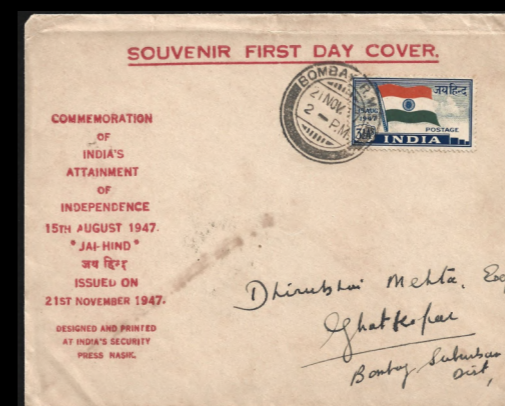 SOUVENIR FIRST DAY COVER.
BOMBAY R.M.
21 NOV.
2 - P.M.
जय हिन्द
1947
POSTAGE
INDIA
COMMEMORATION
OF
INDIA'S
ATTAINMENT
OF
INDEPENDENCE
15TH AUGUST 1947.
"JAI-HIND"
जय हिन्द
ISSUED ON
21ST NOVEMBER 1947.
DESIGNED AND PRINTED
AT INDIA'S SECURITY
PRESS NASIK.
Dhirubhai Mehta, Esq
Ghatkopar
Bombay Suburban
Dist,